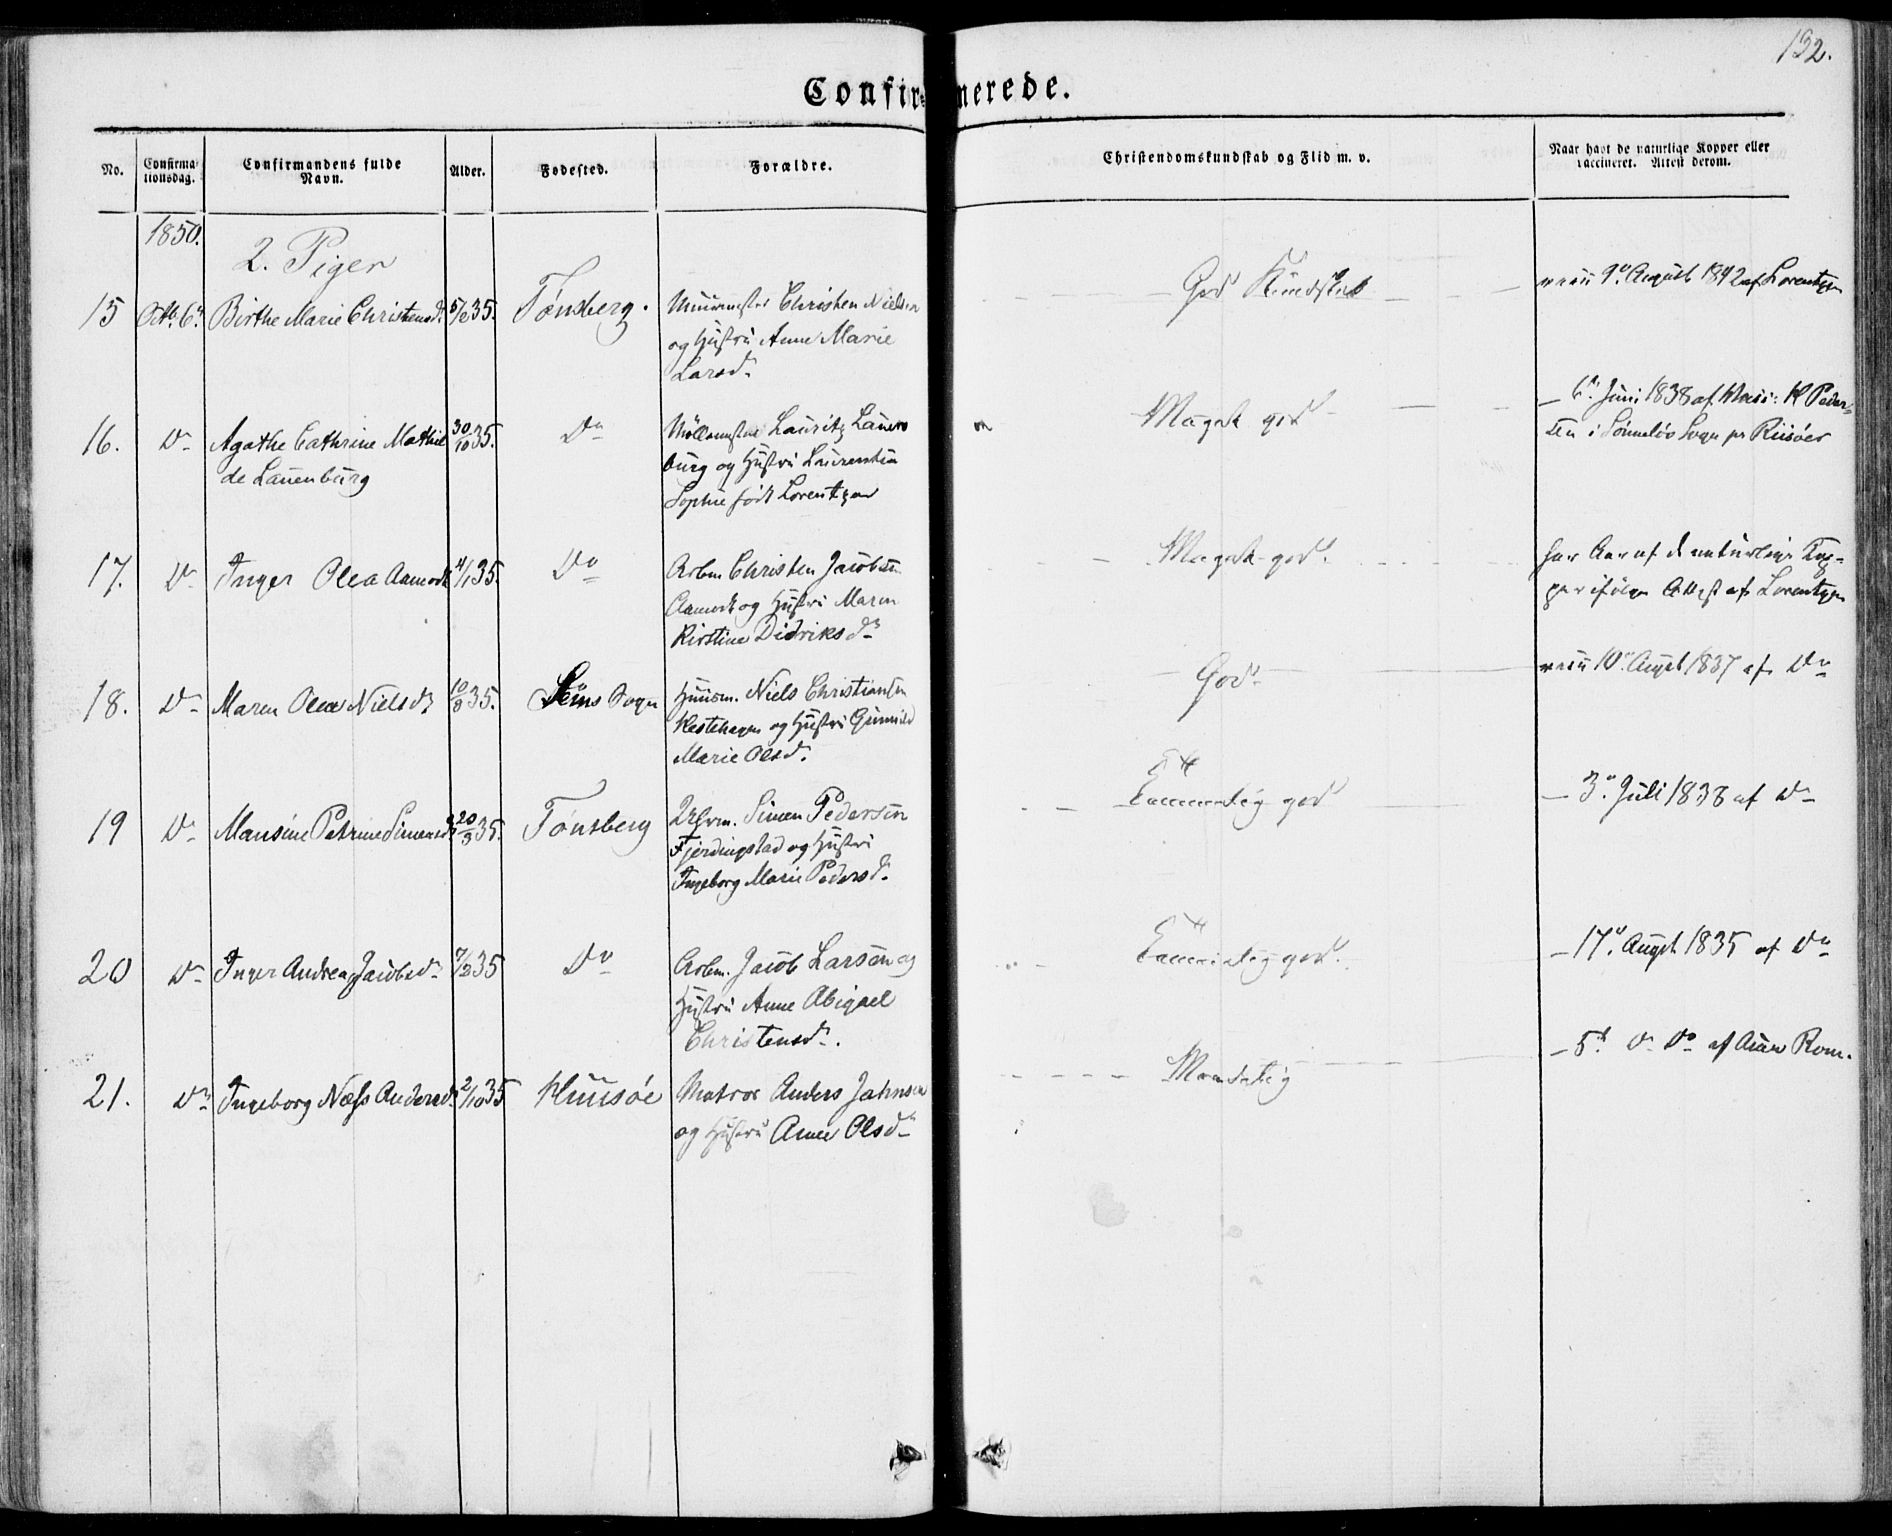 132.
Confirmerede.
No.
Confirma-
tionsdag.
Confirmandens fulde
Navn.
Alder.
Fødested.
Forældre.
Christendomskundskab og Flid m. v.
Naar havt de naturlige Kopper eller
vaccineret. Attest derom.
1850.
2. Piger
15 Octb. 6. Birthe Marie Christensd. 5/6 35. Tønsberg. Muurmester Christen Nielsen
og Hustru Anne Marie
Larsd.
God Kundskab
vacc 9. August 1842 af Lorentzen
16. Do Agathe Cathrine Mathil
de Lauenburg
30/10 35. Do
Møllemester Lauritz Lauen
burg og Hustru Laurentia
Sophie født Lorentzen
Meget god
6. Juni 1838 af K Peder-
sen i Søndeløv Sogn pr Riisøer
17. Do Inger Olea Aamodt 4/1 35. Do
Arbm Christen Jacobsen
Aamodt og Hustru Maren
Kirstine Didriksd.
Meget god.
har Aar af de naturlige Kop-
per ifølge Attest af Lorentzen
18. Do Maren Olea Nielsd. 10/3 35. Sems Sogn
Huusm. Niels Christiansen
Hestehagen og Hustru Gunnild
Marie Olsd.
God
vacc 10. Augst 1837 af Do
19 Do Mansine Petrine Simensd. 20/3 35. Tønsberg
Simen Pedersen
Fjerdingstad og Hustru
Ingeborg Marie Pedersd.
Temmelig god
3. Juli 1838 af Do
20 Do Inger Andrea Jacobsd. 7/2 35 Do
Arbm. Jacob Larsen og
Hustru Anne Abigael
Christensd.
Temmelig god.
17. Augst. 1835 af Do
21. Do Ingeborg Næss Andersd. 2/10 35 Huusøe
Matros Anders Jahnsen
og Hustru Anne Olsd.
Maadelig
5. Do Do af